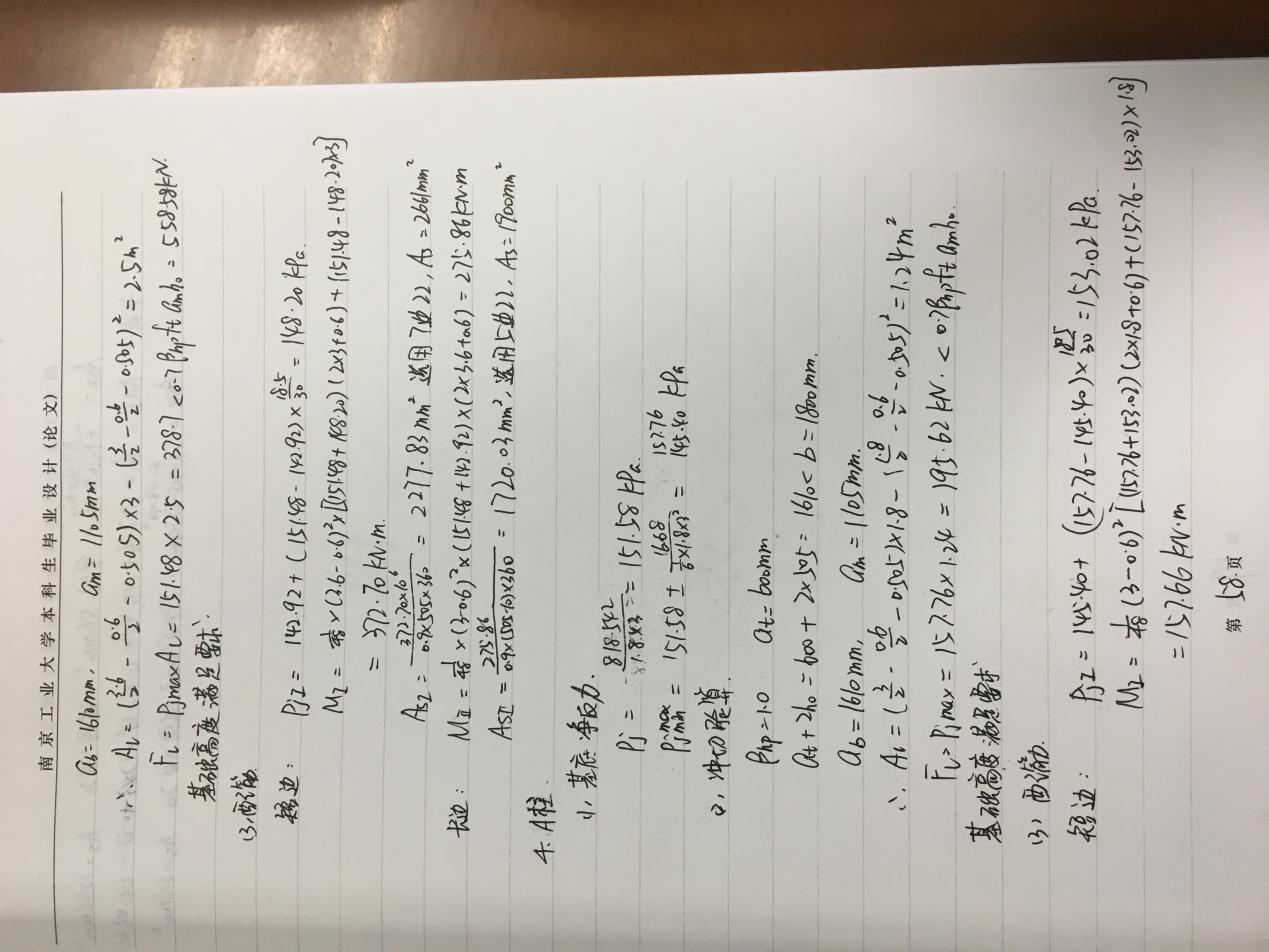 南京工业大学本科生毕业设计(论文)
ab=1610mm, am=1105mm
∴ Al=(3.6/2-0.6/2-0.505)×3-(3/2-0.6/2-0.505)²=2.5m²
Fl=PjmaxAl=151.48×2.5=378.7<0.7βhpftamh0=558.58kN.
基础高度满足要求.
(3)配筋
短边: PjI=142.92+(151.48-142.92)×18.5/30=148.20kPa.
MI=1/48×(3.6-0.6)²×[(151.48+148.20)(2×3+0.6)+(151.48-148.20)×3]
=372.70kN·m.
AsI=372.70×10⁶/0.9×505×360=2277.83mm² 选用7Φ22, As=2661mm²
长边: MⅡ=1/48×(3-0.6)²×(151.48+142.92)×(2×3.6+0.6)=275.86kN·m
AsⅡ=275.86/0.9×(505-10)×360=1720.03mm², 选用5Φ22, As=1900mm²
4. A柱
(1), 基底净反力.
Pj=818.542/1.8×3=151.58kPa.
Pjmax/min=151.58±16.68/(1/6×1.8×3²)=157.76/145.40 kPa
(2), 冲切验算.
βhp=1.0 at=600mm
at+2h0=600+2×505=1610<b=1800mm.
ab=1610mm, am=1105mm.
∴ Al=(3/2-0.6/2-0.505)×1.8-(1.8/2-0.6/2-0.505)²=1.24m²
Fl=Pjmax=157.76×1.24=195.62kN.<0.7βhpftamh0
基础高度满足要求
(3), 配筋.
短边: PjI=145.40+(157.76-145.40)×18.5/30=153.02kPa.
MI=1/48(3-0.6)²[(157.76+153.02)(2×1.8+0.6)+(157.76-153.02)×1.8]
=157.66kN·m
第 58 页